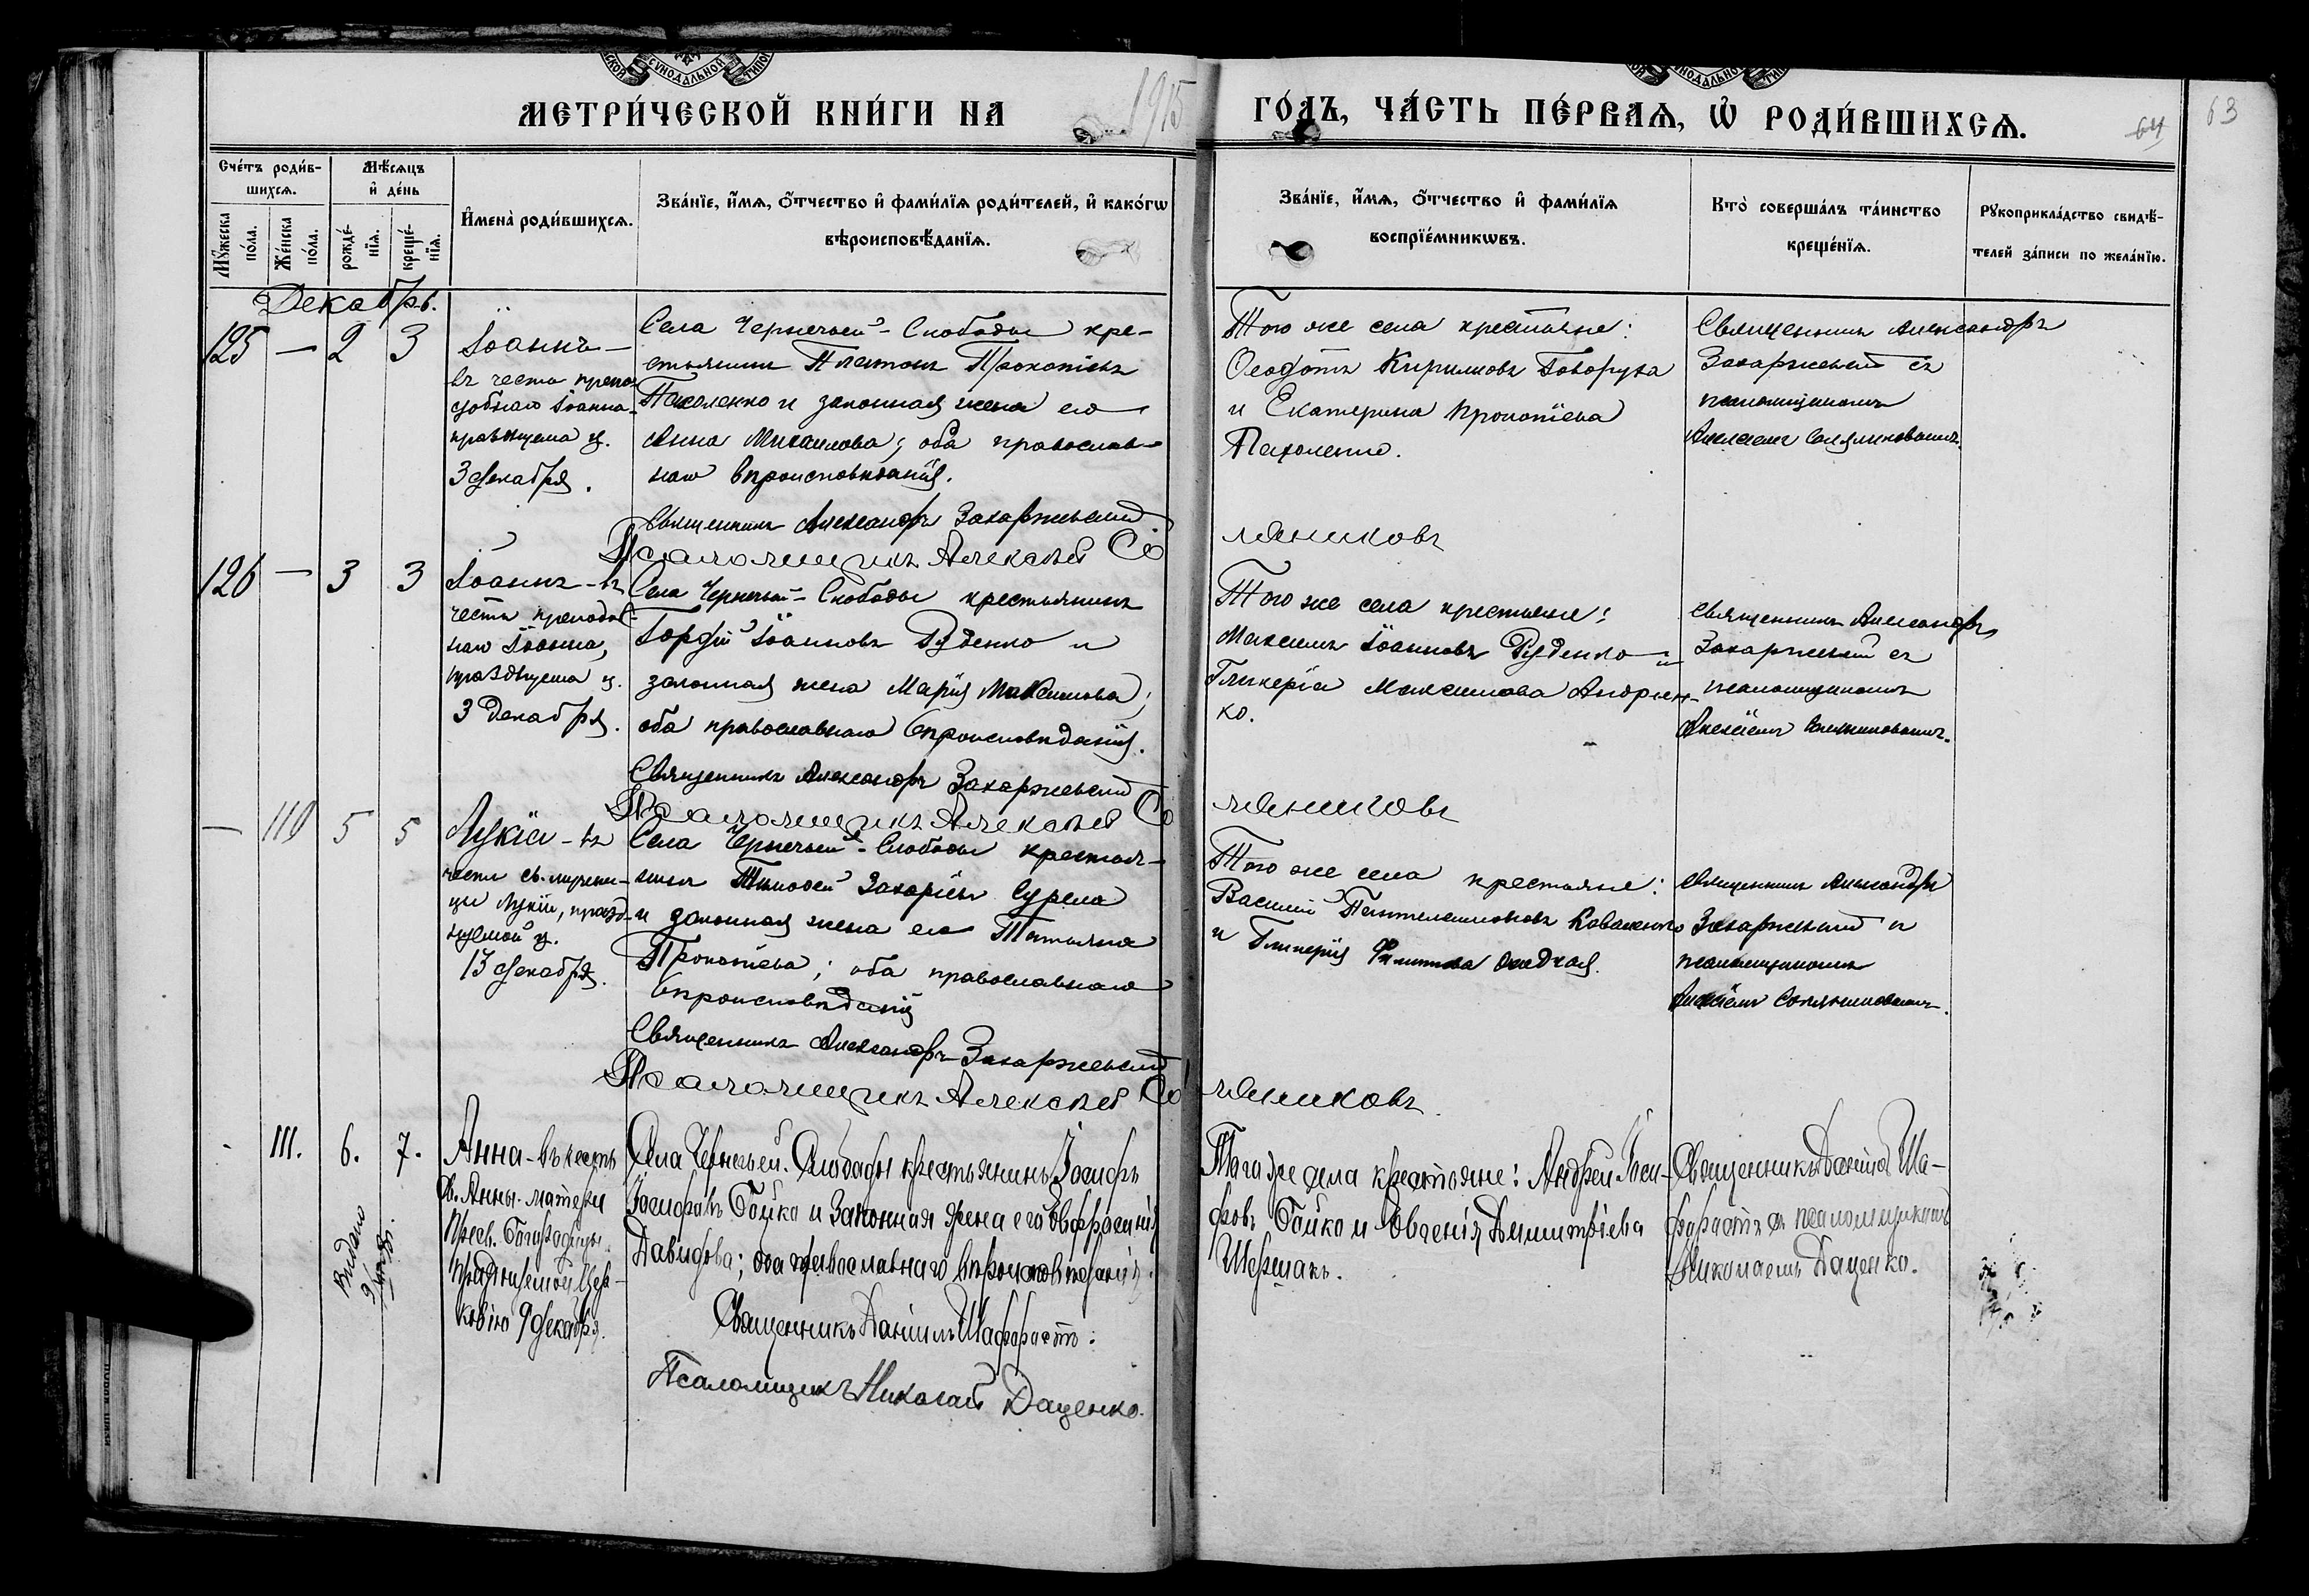 МЕТРИ́ЧЕСКОЙ КНИ́ГИ НА 1915 ГО́ДЪ, ЧА́СТЬ ПЕ́РВАѦ, Ѡ҆ РОДИ́ВШИХСѦ.
64
63
Сче́тъ роди́в-
шихсѧ.
Мѣ́сѧцъ
и҆ де́нь
Мꙋ́жеска
по́ла.
Же́нска
по́ла.
рожде́-
нїѧ.
креще́-
нїѧ.
И҆мена̀ роди́вшихсѧ.
Зва́нїе, и҆́мѧ, ѻ҆́тчество и҆ фами́лїѧ роди́телей, и҆ како́гѡ
вѣроисповѣ́данїѧ.
Зва́нїе, и҆́мѧ, ѻ҆́тчество и҆ фами́лїѧ
воспрїе́мникѡвъ.
Кто̀ соверша́лъ та́инство
креще́нїѧ.
Рꙋкоприкла́дство свидѣ́-
телей за́писи по жела́нїю.
Декабрь.
125 — 2 3
Іоаннъ —
въ честь препо-
добнаго Іоанна
празднуема ц.
3 декабря.
Села Чернечьей-Слободы кре-
стьянинъ Платонъ Прокопіевъ
Пахоленко и законная жена его
Анна Михаилова; оба православ-
наго вѣроисповѣданія.
Священникъ Александръ Захаржевскій
Псаломщикъ Алексѣй Солянниковъ
Того же села крестьяне:
Ѳеодотъ Кирилловъ Говоруха
и Екатерина Прокопіева
Пахоленко.
Священникъ Александръ
Захаржевскій съ
псаломщикомъ
Алексѣемъ Солянниковымъ.
126 — 3 3
Іоаннъ — въ
честь преподоб-
наго Іоанна,
празднуема ц.
3 Декабря.
Села Чернечьей-Слободы крестьянинъ
Гордій Іоанновъ Руденко и
законная жена Марія Максимова;
оба православнаго вѣроисповѣданія.
Священникъ Александръ Захаржевскій
Псаломщикъ Алексѣй Солянниковъ
Того же села крестьяне:
Максимъ Іоанновъ Руденко и
Гликерія Максимова Андріен-
ко.
Священникъ Александръ
Захаржевскій съ
псаломщикомъ
Алексѣемъ Солянниковымъ.
— 110 5 5
Лукія — въ
честь св. мучени-
цы Лукіи, празд-
нуемой ц.
13 декабря.
Села Чернечьей-Слободы крестья-
нинъ Тимоѳей Захаріевъ Сурела
и законная жена его Татьяна
Прокопіева; оба православнаго
вѣроисповѣданія
Священникъ Александръ Захаржевскій
Псаломщикъ Алексѣй Солянниковъ
Того же села крестьяне:
Василій Пантелеимоновъ Коваленко
и Гликерія Филиппова
Священникъ Александръ
Захаржевскій и
псаломщикомъ
Алексѣемъ Солянниковымъ.
- 111. 6. 7.
Выдано
Анна — въ честь
Св. Анны матери
Пресв. Богородицы
празднуемой Цер-
ковію 9 декабря.
Села Чернечьей-Слободы крестьянинъ Іосифъ
Іосифовъ Бойко и законная жена его Евфросинія
Давидова; оба православнаго вѣроисповѣданія.
Священникъ Даніилъ Шафрастъ.
Псаломщикъ Николай Даценко.
Того же села крестьяне: Андрей Іоси-
фовъ Бойко и Евгенія Димитріева
Шерманъ.
Священникъ Даніилъ Ша-
фрастъ съ псаломщикомъ
Николаемъ Даценко.